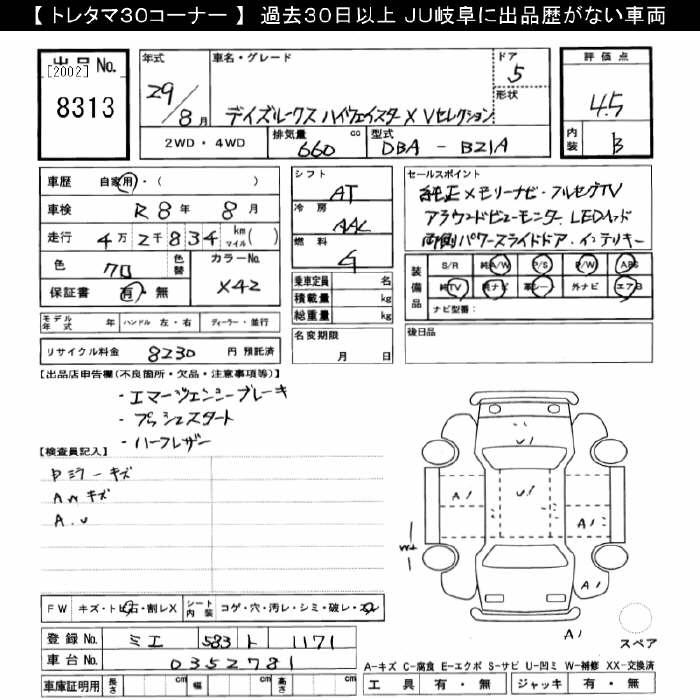 【 トレタマ30コーナー 】 過去30日以上 JU岐阜に出品歴がない車両
出品No. [2002] 8313
年式 29/8月
車名・グレード デイズルークス ハイウェイスター X Vセレクション
ドア 5
形状
評価点 4.5
内装 B
2WD・4WD 排気量 660 cc 型式 DBA - B21A
車歴 自家用・( )
車検 R 8年 8月
走行 4万2千834 km マイル( )
色 クロ 色替 カラーNo. X42
保証書 有・無
シフト AT
冷房 AAC
燃料 G
乗車定員 名
積載量 kg
総重量 kg
セールスポイント
純正メモリーナビ・フルセグTV
アラウンドビューモニター LEDヘッド
両側パワースライドドア・インテリキー
装備品 S/R 純A/W P/S P/W ABS
純TV 純ナビ 革シート 外ナビ エアB
ナビ型番:
モデル年式 年 ハンドル 左・右 ディーラー・並行
名変期限 月 日
後日品
リサイクル料金 8230 円 預託済
【出品店申告欄(不良箇所・欠品・注意事項等)】
・エマージェンシーブレーキ
・プッシュスタート
・ハーフレザー
【検査員記入】
Pミラーキズ
AWキズ
A.U
U1
A1
U1
A1
A1
A1
FW キズ・トビ石・割レX シート内装 コゲ・穴・汚レ・シミ・破レ・スレ
登録No. ミエ 583 ト 1171
車台No. 0352781
スペア
A−キズ C−腐食 E−エクボ S−サビ U−凹ミ W−補修 XX−交換済
車庫証明用 長さ cm 幅 cm 高さ cm
工具 有・無 ジャッキ 有・無